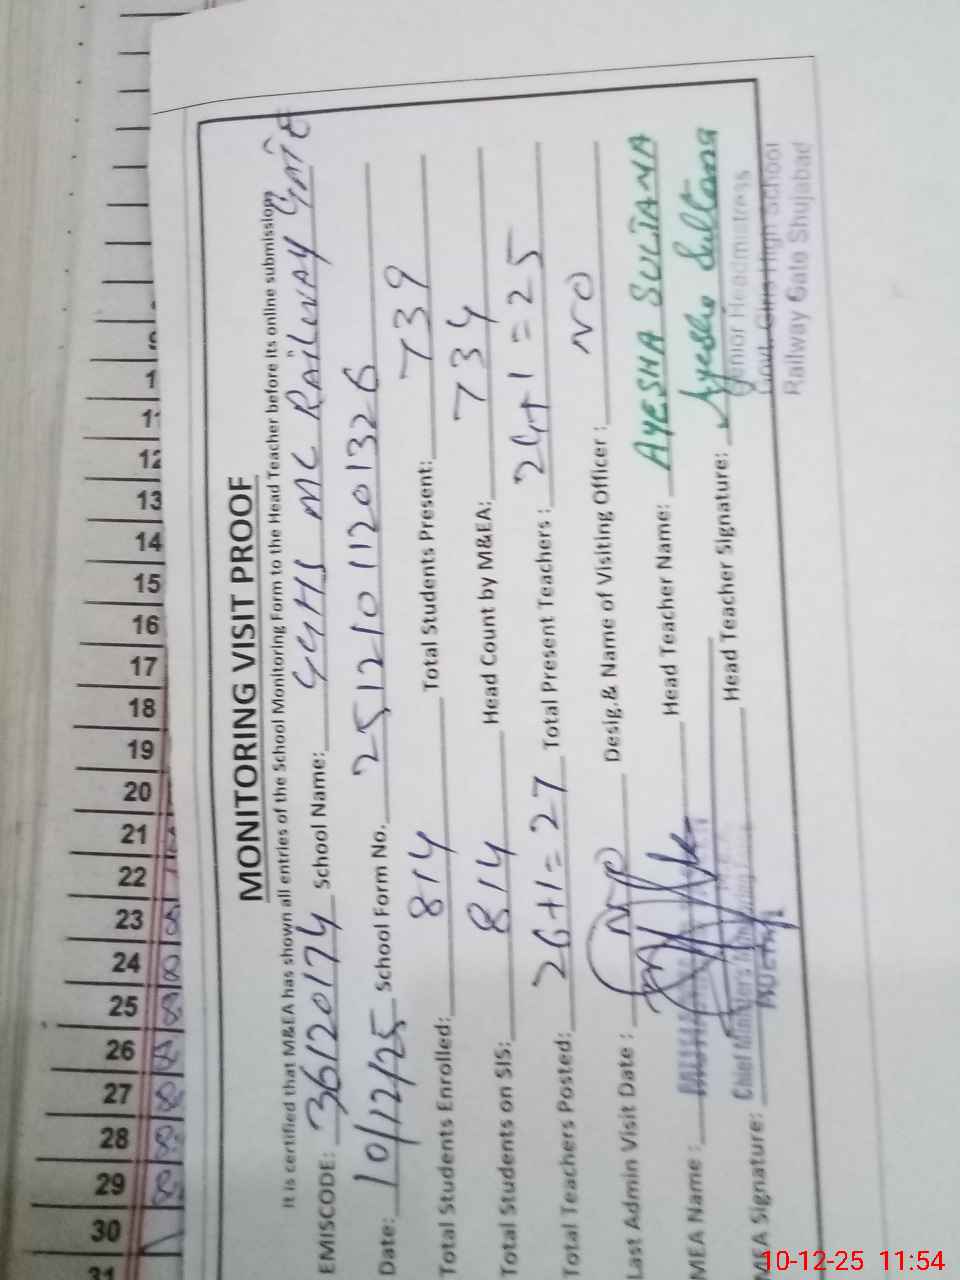 MONITORING VISIT PROOF
It is certified that M&EA has shown all entries of the School Monitoring Form to the Head Teacher before its online submission
EMISCODE: 36120174 School Name: GGHS MC RAILWAY GATE
Date: 10/12/25 School Form No. 2512101201326
Total Students Enrolled: 814 Total Students Present: 739
Total Students on SIS: 814 Head Count by M&EA: 734
Total Teachers Posted: 26+1=27 Total Present Teachers : 24+1=25
Last Admin Visit Date : NO Desig.& Name of Visiting Officer : NO
MEA Name : Head Teacher Name: AYESHA SULTANA
MEA Signature: Head Teacher Signature: Ayesha Sultana
Senior Headmistress
Govt. Girls High School
Railway Gate Shujabad
11
12
13
14
15
16
17
18
19
20
21
22
23
24
25
26
27
28
29
30
31
10-12-25 11:54